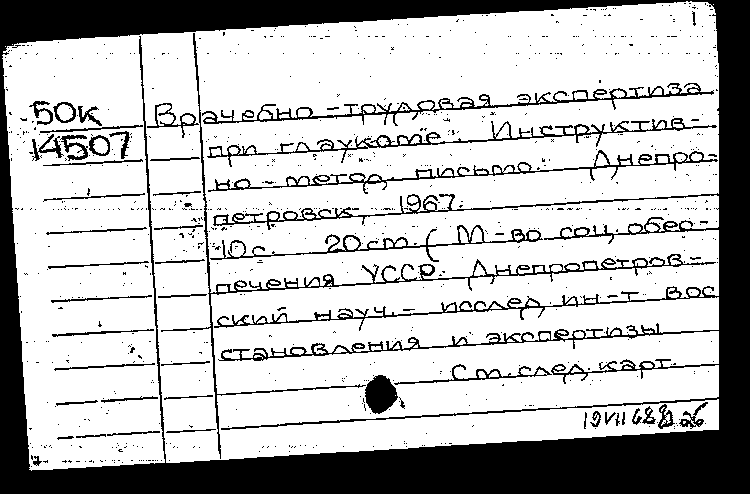 1
50к Врачебно-трудовая экспертиза
14507 при глаукоме. Инструктив-
но-метод. письмо. Днепро-
петровск, 1967.
10с. 20см. (М-во соц. обес-
печения УССР. Днепропетров-
ский науч.-исслед. ин-т вос
становления и экспертизы
См. след. карт.
19 VII 68